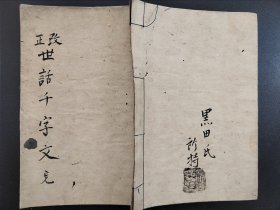 改正
世話千字文完
黒田氏
所持